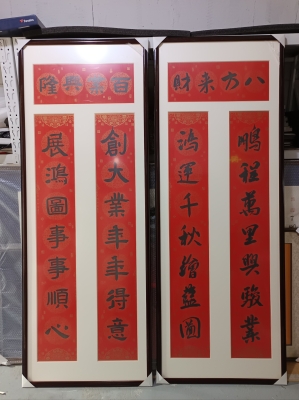 百業興隆
創大業年年得意
展鴻圖事事順心
八方来財
鵬程萬里興駿業
鴻運千秋繪藍圖